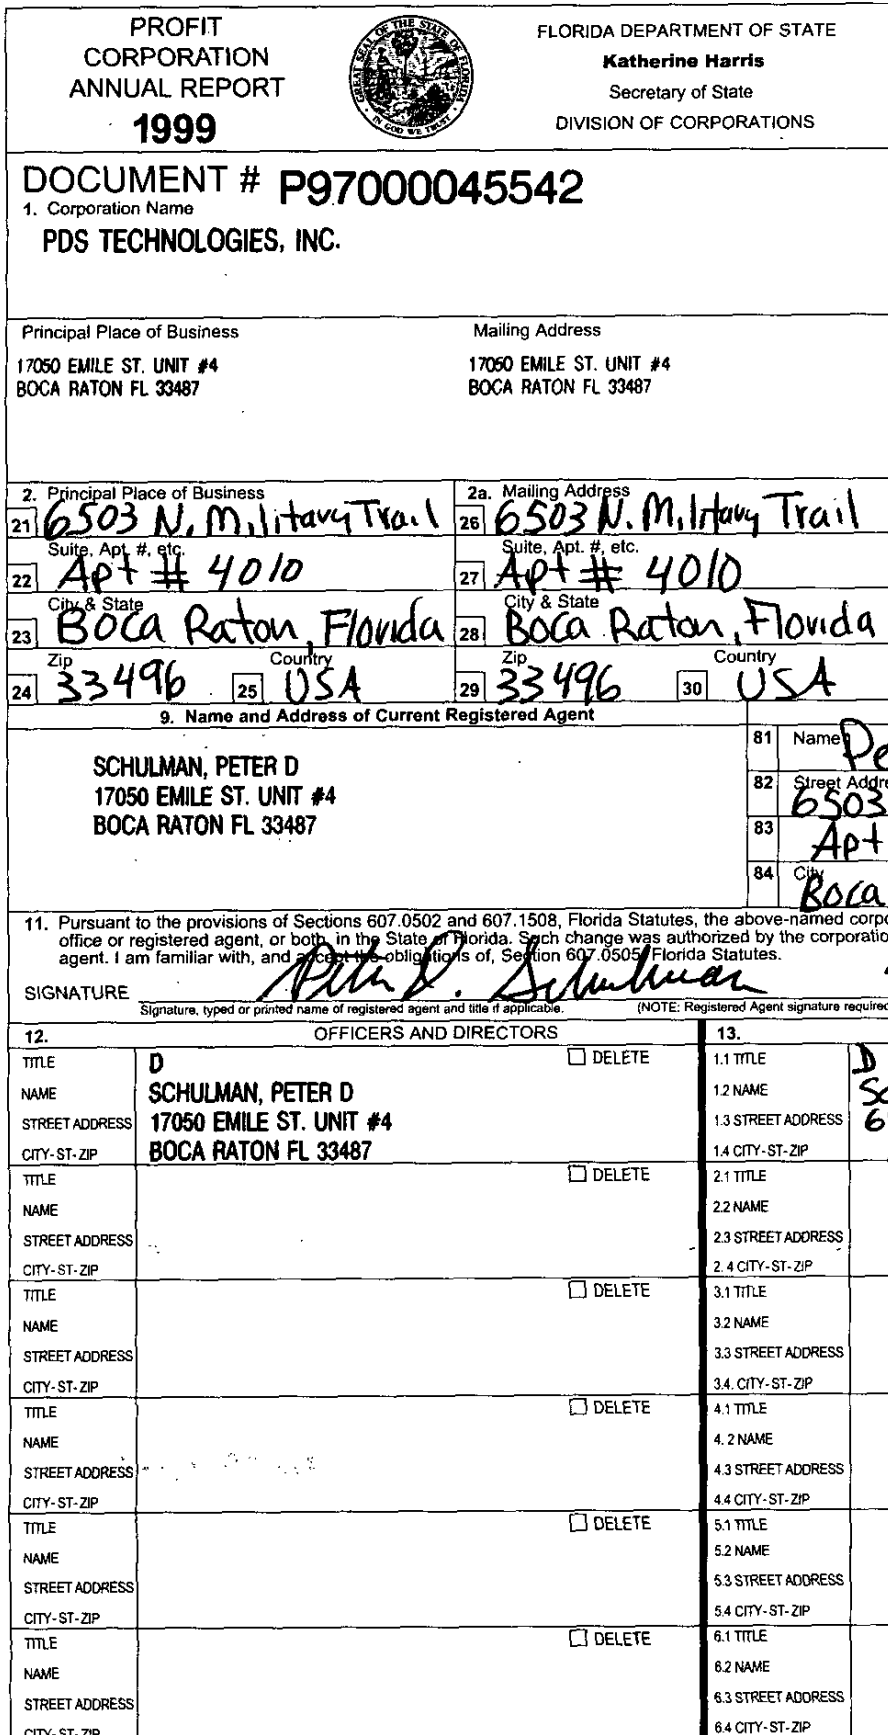 PROFIT
CORPORATION
ANNUAL REPORT
1999
GREAT SEAL OF THE STATE OF FLORIDA
IN GOD WE TRUST
FLORIDA DEPARTMENT OF STATE
Katherine Harris
Secretary of State
DIVISION OF CORPORATIONS
DOCUMENT # P97000045542
1. Corporation Name
PDS TECHNOLOGIES, INC.
Principal Place of Business
17050 EMILE ST. UNIT #4
BOCA RATON FL 33487
Mailing Address
17050 EMILE ST. UNIT #4
BOCA RATON FL 33487
2. Principal Place of Business
21 6503 N. Military Trail
Suite, Apt. #, etc.
22 Apt # 4010
City & State
23 Boca Raton, Florida
Zip Country
24 33496 25 USA
2a. Mailing Address
26 6503 N. Military Trail
Suite, Apt. #, etc.
27 Apt # 4010
City & State
28 Boca Raton, Florida
Zip Country
29 33496 30 USA
9. Name and Address of Current Registered Agent
SCHULMAN, PETER D
17050 EMILE ST. UNIT #4
BOCA RATON FL 33487
81 Name Pe
82 Street Addre
6503
83 Apt
84 City
Boca
11. Pursuant to the provisions of Sections 607.0502 and 607.1508, Florida Statutes, the above-named corpo
office or registered agent, or both, in the State of Florida. Such change was authorized by the corporatio
agent. I am familiar with, and accept the obligations of, Section 607.0505, Florida Statutes.
SIGNATURE Peter D. Schulman
Signature, typed or printed name of registered agent and title if applicable. (NOTE: Registered Agent signature required
12. OFFICERS AND DIRECTORS
TITLE D DELETE
NAME SCHULMAN, PETER D
STREET ADDRESS 17050 EMILE ST. UNIT #4
CITY-ST-ZIP BOCA RATON FL 33487
TITLE DELETE
NAME
STREET ADDRESS
CITY-ST-ZIP
TITLE DELETE
NAME
STREET ADDRESS
CITY-ST-ZIP
TITLE DELETE
NAME
STREET ADDRESS
CITY-ST-ZIP
TITLE DELETE
NAME
STREET ADDRESS
CITY-ST-ZIP
TITLE DELETE
NAME
STREET ADDRESS
CITY-ST-ZIP
13.
1.1 TITLE D
1.2 NAME Sc
1.3 STREET ADDRESS 6
1.4 CITY-ST-ZIP
2.1 TITLE
2.2 NAME
2.3 STREET ADDRESS
2.4 CITY-ST-ZIP
3.1 TITLE
3.2 NAME
3.3 STREET ADDRESS
3.4. CITY-ST-ZIP
4.1 TITLE
4.2 NAME
4.3 STREET ADDRESS
4.4 CITY-ST-ZIP
5.1 TITLE
5.2 NAME
5.3 STREET ADDRESS
5.4 CITY-ST-ZIP
6.1 TITLE
6.2 NAME
6.3 STREET ADDRESS
6.4 CITY-ST-ZIP